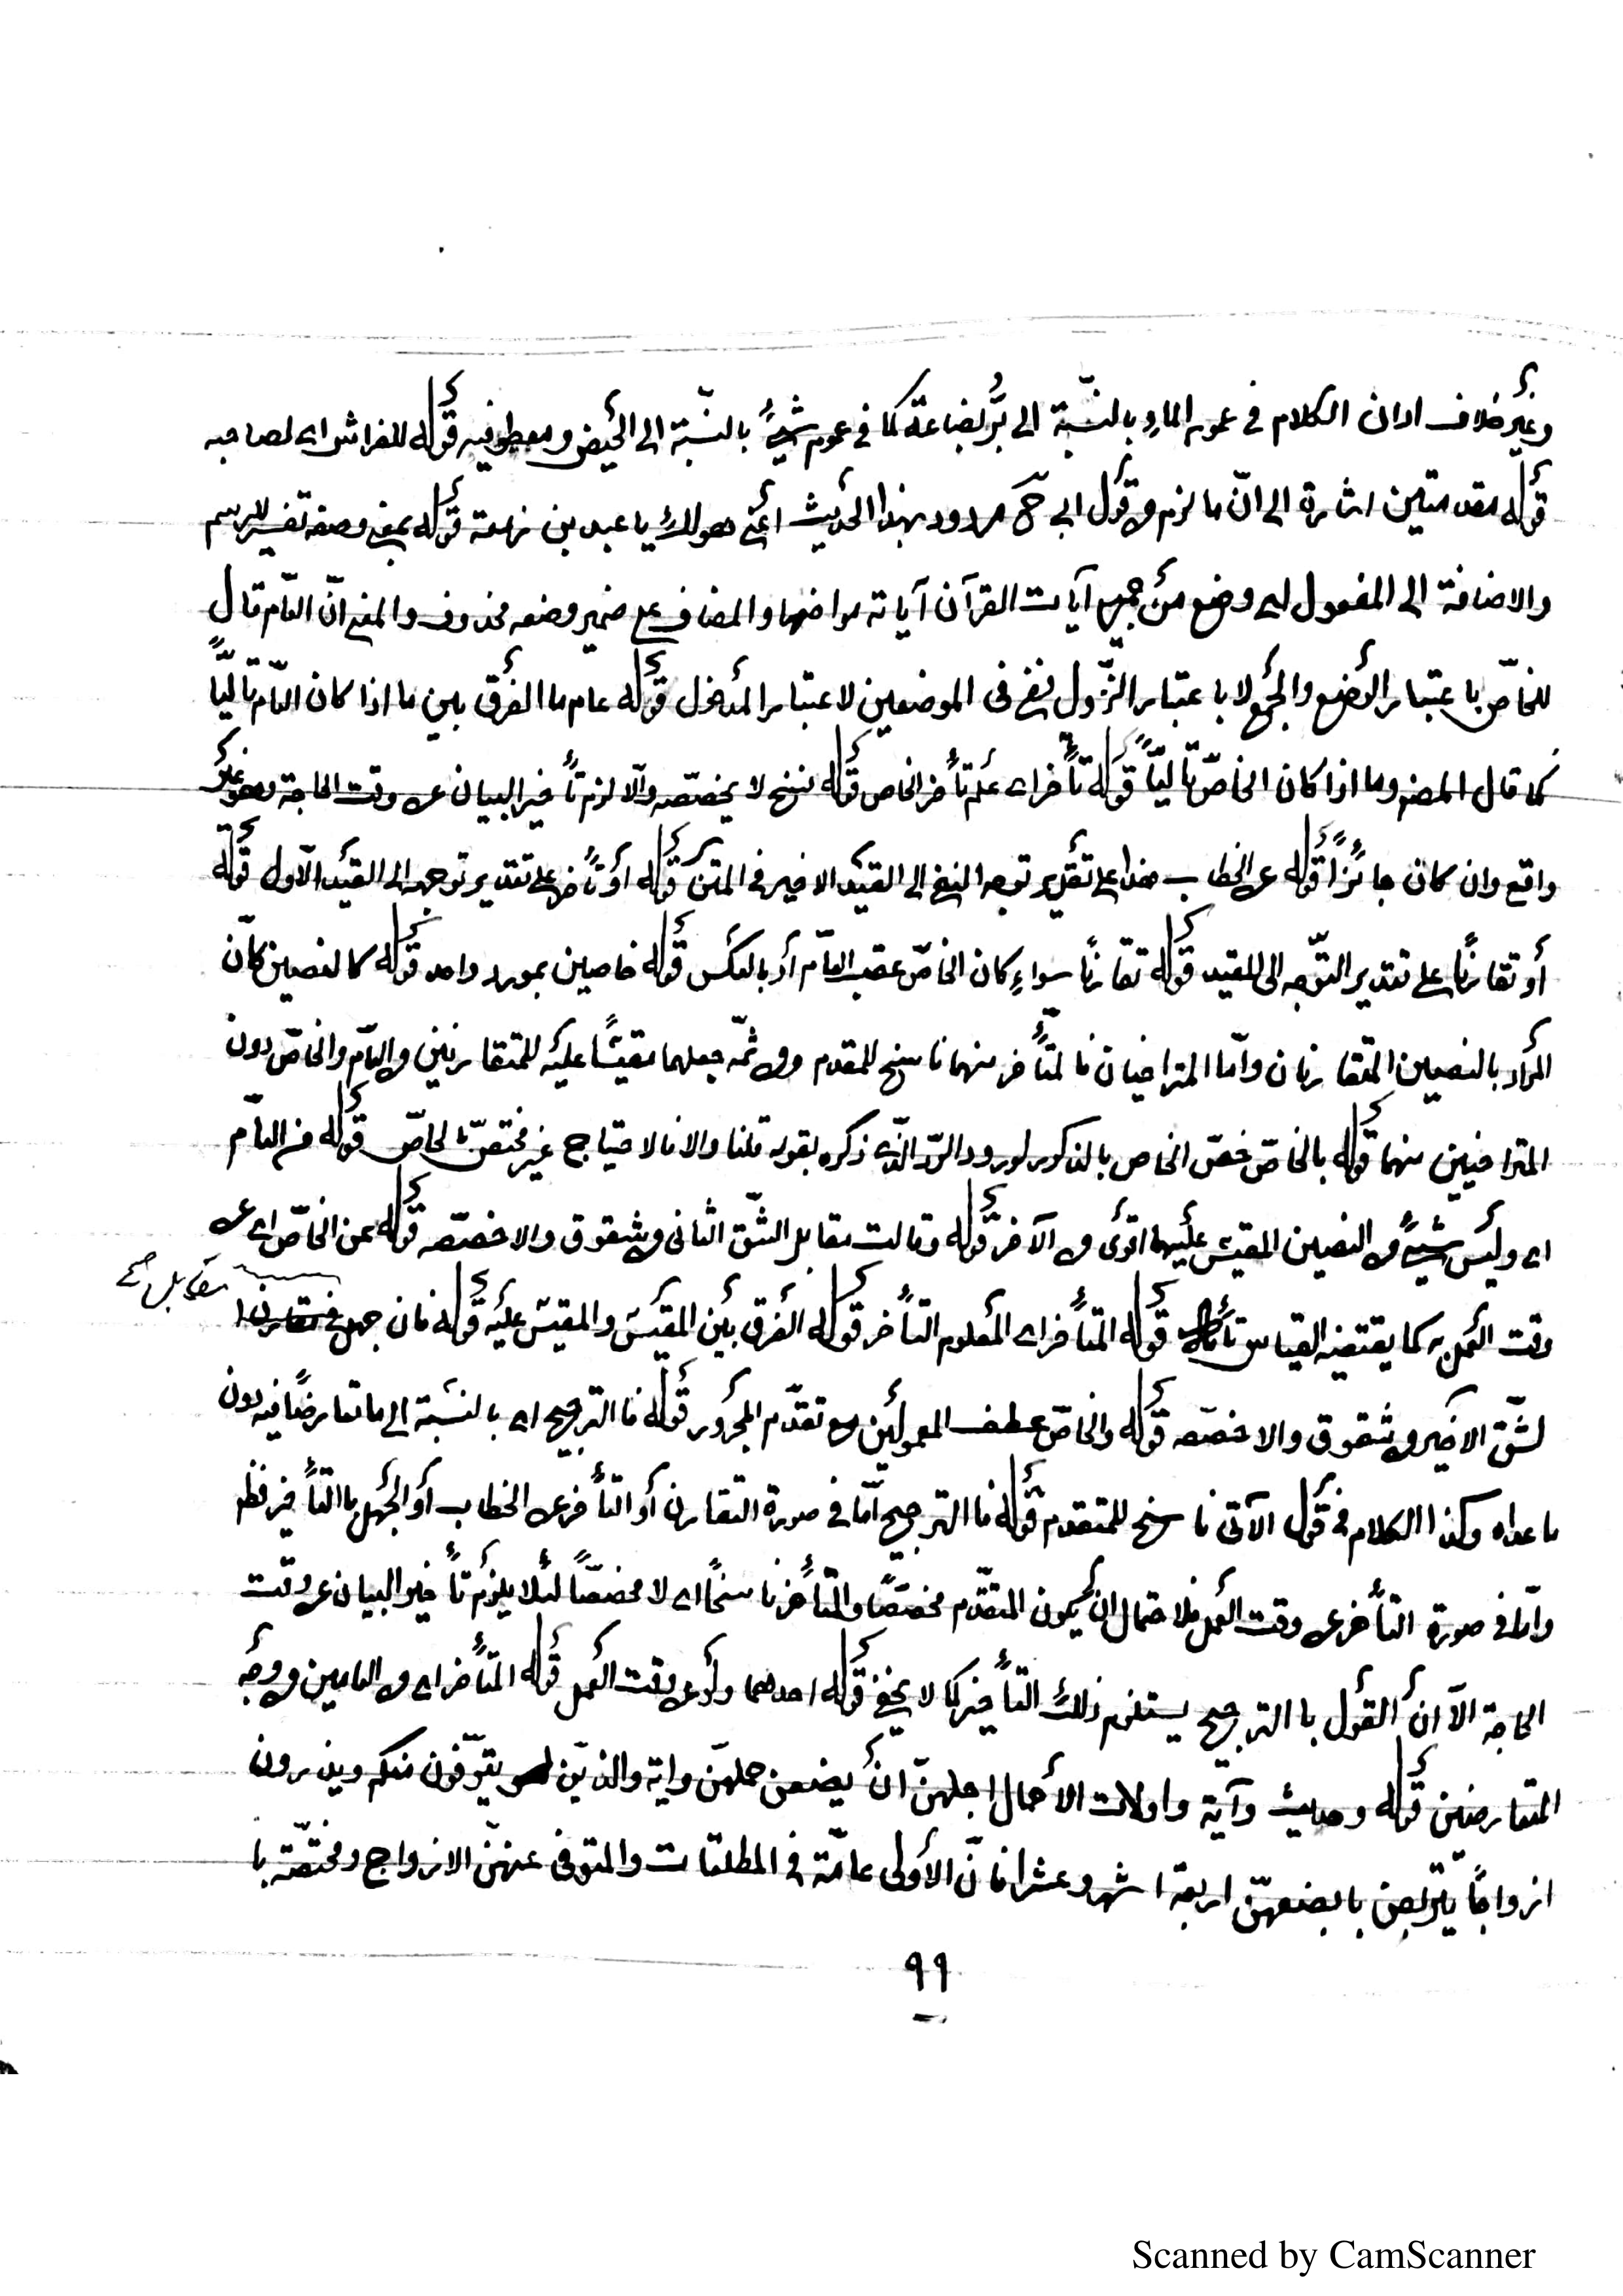 وغير خلاف اذان الكلام في عموم الماء بالنسبة الى بئر بضاعة كما في عموم شيئ بالنسبة الى الحيض ومعطوفيه قوله للفراش اى لصاحبه
قوله مقدمتين اشارة الى انّ ما لزم من قول ابي ح مردود بهذا الحديث اعني هو لك يا عبد بن زمعة قوله بمعنى وصفه تفسير للرسم
والاضافة الى المفعول اى وضع من جمع آيات القرآن آياته مواضعها والمضاف على ضمير وضعه محذوف والمعنى انّ العامّ تال
للخاصّ باعتبار الوضع والجمع لا باعتبار النّزول نفي في الموضعين لاعتبار المدخول قوله عام ما الفرق بين ما اذا كان العامّ تالياً
كما قال المصنف وما اذا كان الخاصّ تالياً قوله تأخر اى علم تأخر الخاص قوله نسخ لا يخصّصه والّا لزم تأخير البيان عن وقت الحاجة وهو غير
واقع وان كان جائزاً قوله عن الخطاب هذا على تقدير توجه النفي الى القيد الاخير في المتن قوله أو تأخر على تقدير توجهه الى القيد الاول قوله
أو تقارنا على تقدير التوجه الى المقيد قوله تقارنا سواء كان الخاصّ عقب العامّ أو بالعكس قوله خاصين بمورد واحد قوله كالنصين كأنّ
المراد بالنصين المتقارنان وامّا المتراخيان فالمتأخر منهما ناسخ للمقدم ومن ثمّه جعلهما مقيساً عليه للمتقارنين من العامّ والخاصّ دون
المتراخيين منهما قوله بالخاصّ خصّ الخاص بالذكور لورود الرد الّذى ذكره بقوله قلنا والا فالاحتياج غير مختصّ بالخاصّ قوله من العامّ
اى وليس شيئ من النصين المقيس عليهما اقوى من الآخر قوله وقالت مقابل الشّق الثانى من شقوق والا خصّصه قوله عن الخاصّ اى عن
وقت العمل به كما يقتضيه القياس تأمل قوله المتأخر اى المعلوم التأخر قوله الفرق بين المقيس والمقيس عليه قوله فان جهل في تقارن ا
مقابل صح
لشّق الاخير من شقوق والا خصّصه قوله والخاصّ عطف المعمولين مع تقدّم المجرور قوله فالترجيح اى بالنسبة الى ما تعارضا فيه دون
ما عداه وكذا الكلام في قول الآتى ناسخ للمتقدم قوله فالترجيح امّا في صورة التقارن أو التأخر عن الخطاب أو الجهل بالتأخير فظ
وامّا في صورة التأخر عن وقت العمل فلاحتمال ان يكون المتقدّم مخصّصا والمتأخر ناسخاً اى لا مخصّصاً لئلا يلزم تأخير البيان عن وقت
الحاجة الّا أن القول باالترجيح يستلزم ذلك التأخير كما لا يخفى قوله احدهما ولو عن وقت العمل قوله المتأخر اى من العامين من وجه
المتعارضين قوله وحديث وآية واولات الأحمال اجلهنّ ان يضعن حملهنّ واية والذين يتوّفون منكم ويذرون
ازواجًا يتّربصن بابضعهنّ اربعة اشهر وعشرا فانّ الأولى عامّة في المطلقات والمتوفى عنهنّ الازواج ومختصّة با
٩٩
Scanned by CamScanner